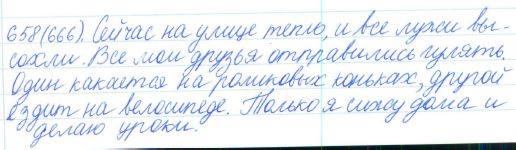 658(666). Сейчас на улице тепло, и все лужи вы-
сохли. Все мои друзья отправились гулять.
Один катается на роликовых коньках, другой
ездит на велосипеде. Только я сижу дома и
делаю уроки.